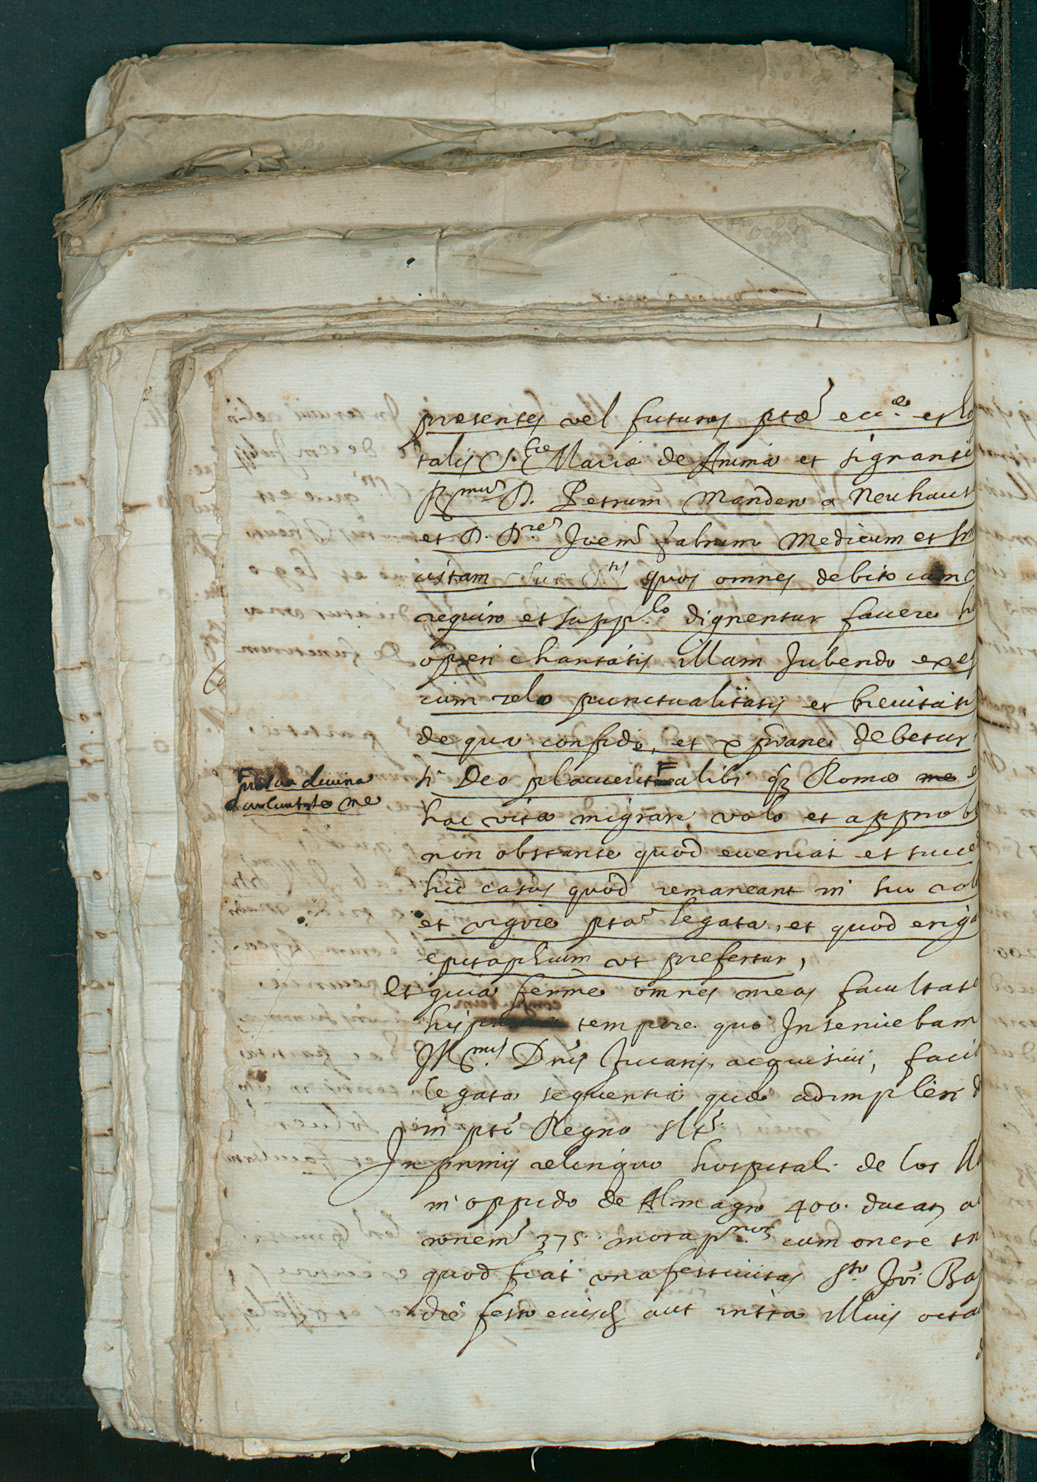 presentes vel futuros ptae eccae et ho
talis S. Ctae Mariae de Anima et signante
Rmum D. Petrum Mander a Neuhaus
et D. Drem Joem Fabrum Medicum et
istam quos omnes debito cum
requiro et suppco dignentur favere h
operi charitatis illam Jubendo exe
cum zelo punctualitatis et brevitat
de quo confido, et
si Deo placuerit alibi qz Romae me e
Fuisca divina
voluntate me
hac vita migrare, volo et approb
non obstante quod eveniat et succe
hic casus quod remaneant in suo rob
et vigore pta legata, et quod eriga
epitaphium ut prefertur,
Et quia ferme omnes meas facultat
his tempore quo Inserviebam
Illmis Dnis fucaris, acquisivi, faci
legata sequentia quae adimpleri d
in pto Regno
In primis relinquo hospitali de los
in oppido de Almagro 400. ducat, a
ronem 375 cum onere
quod fiat una festivitas Sto Joi Ba
die festo eiusd aut intra illius octa